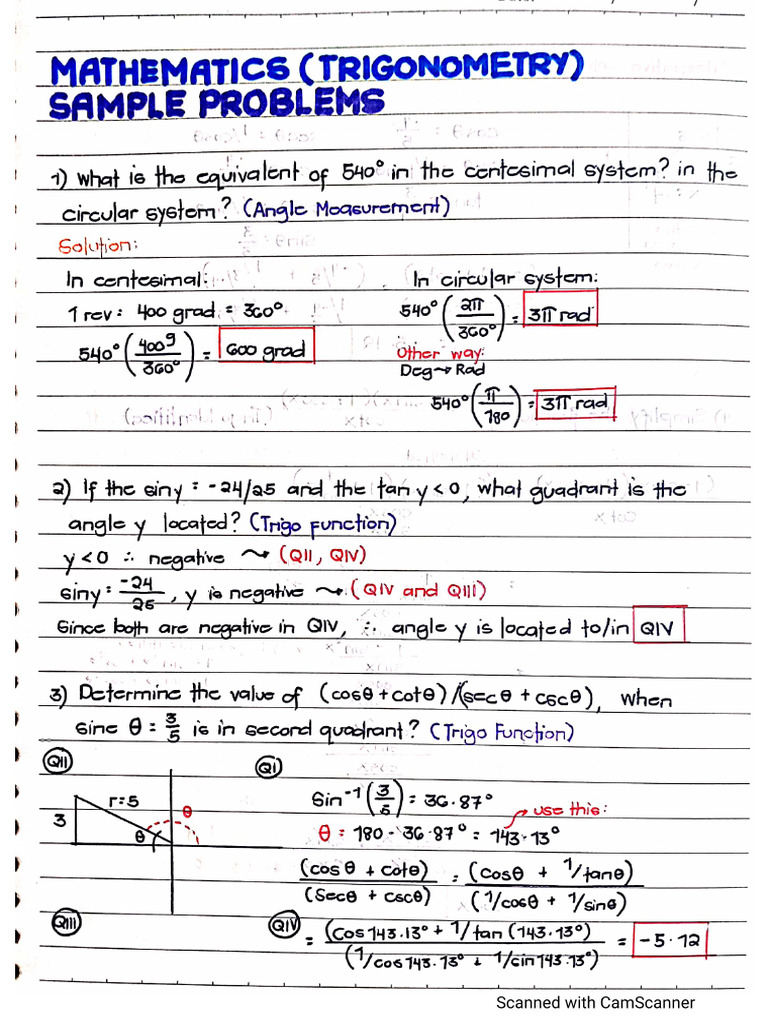 MATHEMATICS (TRIGONOMETRY)
SAMPLE PROBLEMS
1) What is the equivalent of 540° in the centesimal system? in the
circular system? (Angle Measurement)
Solution:
In centesimal:
1 rev: 400 grad = 360°
540° (400g/360°) = 600 grad
In circular system:
540° (2π/360°) = 3π rad
Other way:
Deg → Rad
540° (π/180) = 3π rad
2) If the siny = -24/25 and the tan y < 0, what quadrant is the
angle y located? (Trigo function)
y < 0 ∴ negative ⤳ (QII, QIV)
siny = -24/25, y is negative ⤳ (QIV and QIII)
Since both are negative in QIV, ∴ angle y is located to/in QIV
3) Determine the value of (cosθ + cotθ)/(secθ + cscθ), when
sine θ = 3/5 is in second quadrant? (Trigo Function)
QII
QI
r=5
3
θ
θ
QIII
QIV
Sin⁻¹(3/5) = 36.87°
use this:
θ = 180 - 36.87° = 143.13°
(cosθ + cotθ)/(secθ + cscθ) = (cosθ + 1/tanθ)/(1/cosθ + 1/sinθ)
= (cos 143.13° + 1/tan (143.13°))/(1/cos 143.13° + 1/sin 143.13°) = -5.12
Scanned with CamScanner